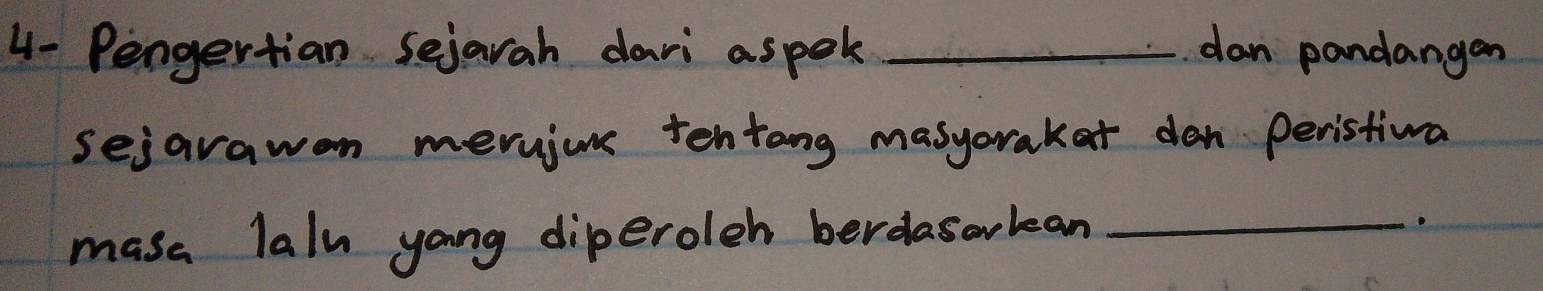 4- Pengertian sejarah dari aspek __________ dan pandangan
sejarawan merujuk tentang masyarakat dan Peristiwa
masa lalu yang diperoleh berdasarkan __________.